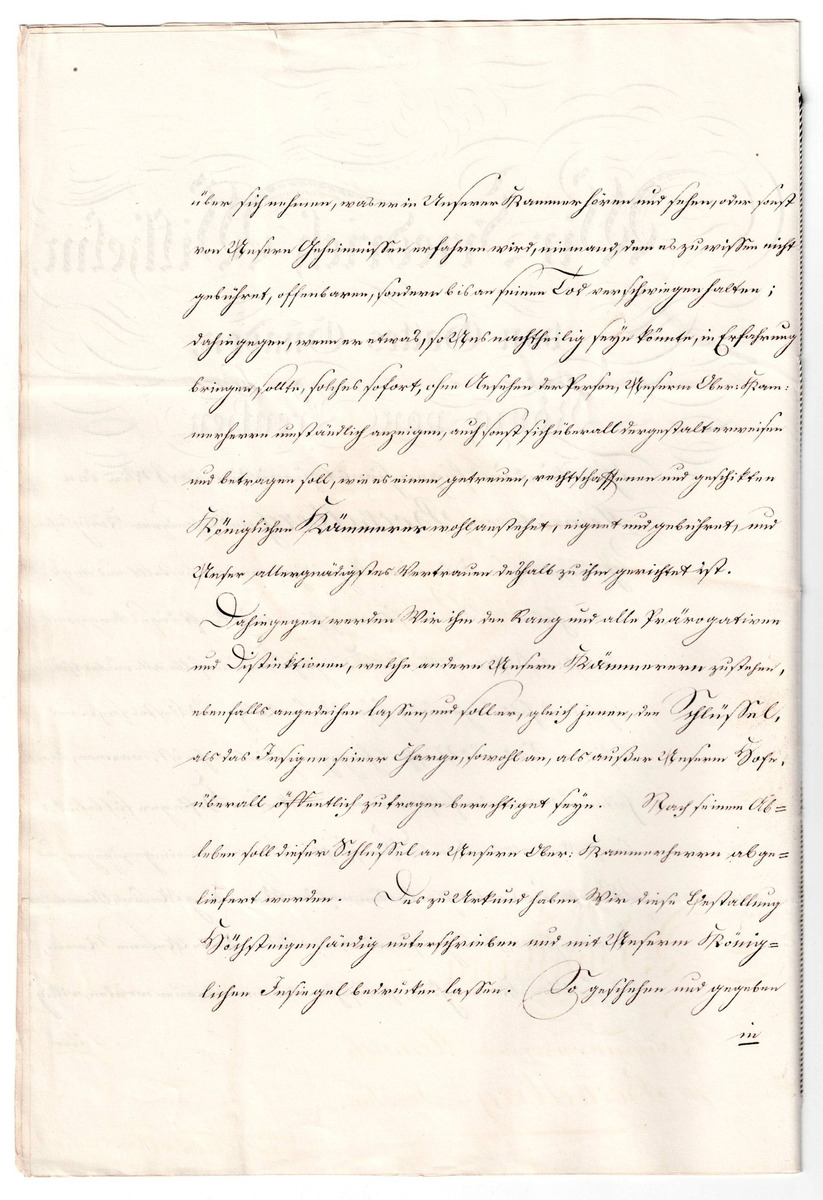 über sich nehmen, was er in Unserer Kammer hören und sehen, oder sonst
von Unsern Geheimnissen erfahren wird, niemand, dem es zu wissen nicht
gebühret, offenbaren, sondern bis an seinen Tod verschwiegen halten;
dahingegen, wenn er etwas, so Uns nachtheilig seyn könnte, in Erfahrung
bringen sollte, solches sofort, ohne Ansehen der Person, Unserm Ober-Kam-
merherrn umständlich anzeigen, auch sonst sich überall dergestalt erweisen
und betragen soll, wie es einem getreuen, rechtschaffenen und geschikten
Königlichen Kämmerer wohl anstehet, eignet und gebühret, und
Unser allergnädigstes Vertrauen deshalb zu ihm gerichtet ist.
Dahingegen werden Wir ihm den Rang und alle Prärogativen
und Distinktionen, welche andern Unsern Kämmerern zustehen,
ebenfalls angedeihen lassen, und soll er, gleich jenen, den Schlüssel,
als das Insigne seiner Charge, sowohl an, als außer Unserm Hofe,
überall öffentlich zu tragen berechtiget seyn. Nach seinem Ab=
leben soll dieser Schlüssel an Unsern Ober-Kammerherrn abge=
liefert werden. Des zu Urkund haben Wir diese Bestallung
Höchsteigenhändig unterschrieben und mit Unserm König=
lichen Insiegel bedrucken lassen. So geschehen und gegeben
in